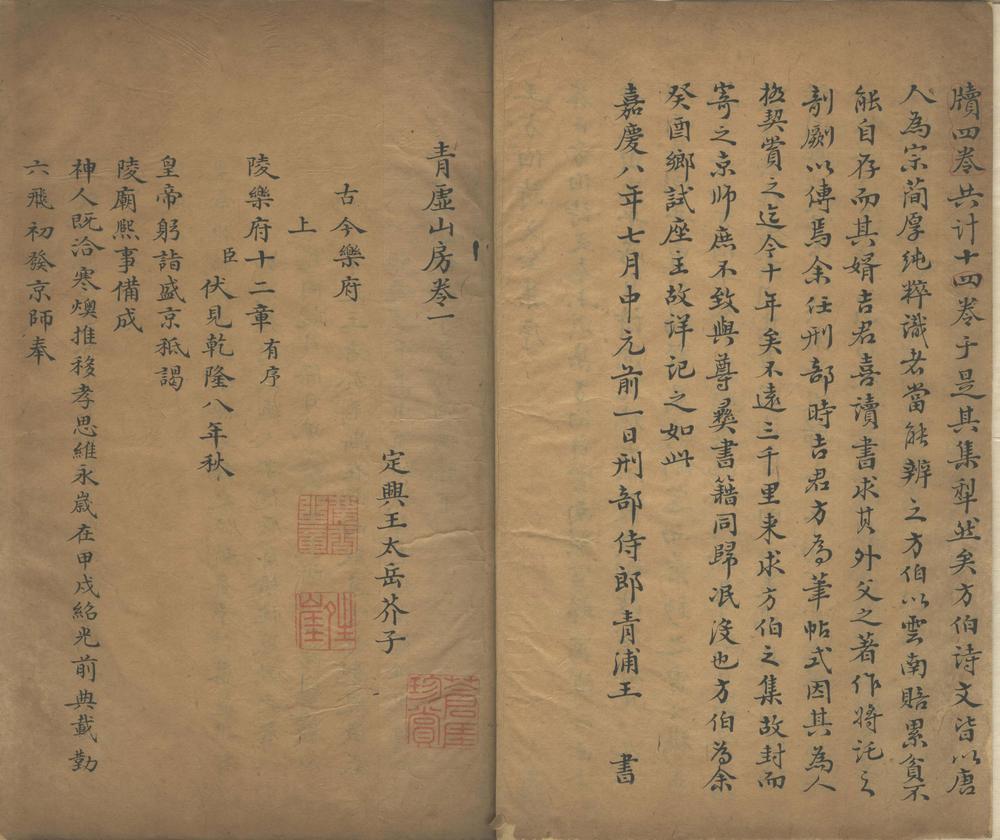 牘四卷共计十四卷于是其集犁然矣方伯诗文皆以唐
人為宗蕳厚纯粹識者當能辨之方伯以雲南賠累貧不
能自存而其婿吉君喜讀書求其外父之著作將託之
剞劂以傳焉余任刑部時吉君方為筆帖式因其為人
極契賞之迄今十年矣不遠三千里来求方伯之集故封而
寄之京師庶不致與尊彝書籍同歸泯没也方伯為余
癸酉鄉試座主故详記之如此
嘉慶八年七月中元前一日刑部侍郎青浦王 書
青虛山房卷一
定興王太岳芥子
古今樂府
上
陵樂府十二章有序
臣伏見乾隆八年秋
皇帝躬詣盛京祗謁
陵廟熙事備成
神人既洽寒燠推移孝思維永歲在甲戌紹光前典載勤
六飛初發京師奉
蒼崖
珍賞